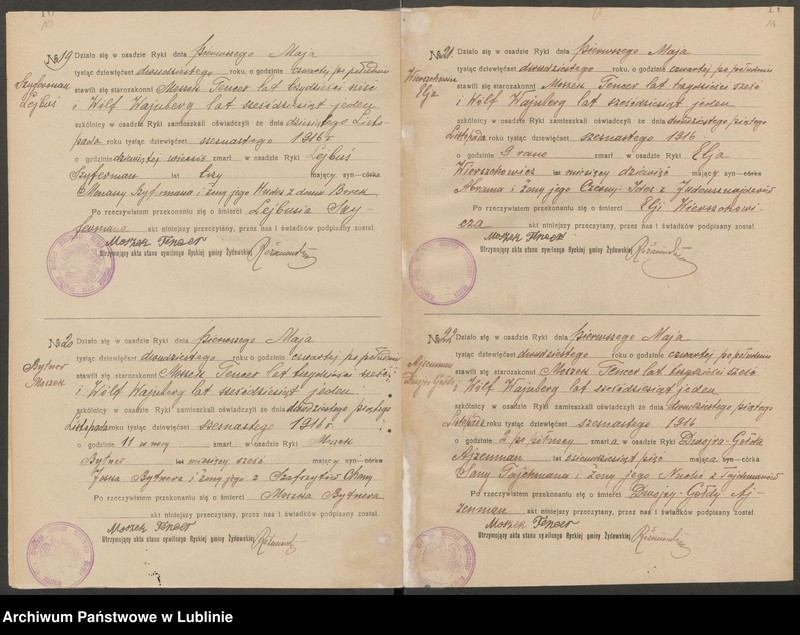 № 19
Szyferman
Lejbuś
Działo się w osadzie Ryki dnia pierwszego Maja
tysiąc dziewięćset dwudziestego roku, o godzinie czwartej po południu
stawili się starozakonni Moszek Fencer lat trzydzieści sześć
i Wólf Wajnberg lat sześćdziesiąt jeden
szkólnicy w osadzie Ryki zamieszkali oświadczyli że dnia dziesiątego Listo-
pada roku tysiąc dziewięćset szesnastego 1916 r
o godzinie dziewiątej zmarł w osadzie Ryki Lejbuś
Szyferman lat trzy mający syn—córka
i żony jego Hudes z domu Borek
Po rzeczywistem przekonaniu się o śmierci Lejbusia Szy-
fermana akt niniejszy przeczytany, przez nas i świadków podpisany został.
Moszek Fencer
Utrzymujący akta stanu sywilnego Ryckiej gminy Żydowskiej
№ 20
Bytner
Moszek
Działo się w osadzie Ryki dnia pierwszego Maja
tysiąc dziewięćset dwudziestego roku o godzinie czwartej po południu
stawili się starozakonni Moszek Fencer lat trzydzieści sześć
i Wólf Wajnberg lat sześćdziesiąt jeden
szkólnicy w osadzie Ryki zamieszkali oświadczyli że dnia dwudziestego piątego
Listopada roku tysiąc dziewięćset szesnastego 1916 r
o godzinie 11 w nocy zmarł w osadzie Ryki Moszek
Bytner lat miesięcy sześć mający syn—córka
Joska Bytnera i żony jego z Chany
Po rzeczywistem przekonaniu się o śmierci Moszka Bytnera
akt niniejszy przeczytany, przez nas i świadków podpisany został.
Moszek Fencer
Utrzymujący akta stanu sywilnego Ryckiej gminy Żydowskiej
№ 21
Wierzchowicz
Elja
Działo się w osadzie Ryki dnia pierwszego Maja
tysiąc dziewięćset dwudziestego roku, o godzinie czwartej po południu
stawili się starozakonni Moszek Fencer lat trzydzieści sześć
i Wólf Wajnberg lat sześćdziesiąt jeden
szkólnicy w osadzie Ryki zamieszkali oświadczyli że dnia dwudziestego piątego
Listopada roku tysiąc dziewięćset szesnastego 1916
o godzinie 9 rano zmarł w osadzie Ryki Elja
Wierzchowicz lat miesięcy dziewięć mający syn—córka
Abrama i żony jego
Po rzeczywistem przekonaniu się o śmierci Elji Wierzchowi-
cza akt niniejszy przeczytany, przez nas i świadków podpisany został.
Moszek Fencer
Utrzymujący akta stanu sywilnego Ryckiej gminy Żydowskiej
№ 22
Ajzenman
Dwojra Gołda
Działo się w osadzie Ryki dnia pierwszego Maja
tysiąc dziewięćset dwudziestego roku o godzinie czwartej po południu
stawili się starozakonni Moszek Fencer lat trzydzieści sześć
i Wólf Wajnberg lat sześćdziesiąt jeden
szkólnicy w osadzie Ryki zamieszkali oświadczyli że dnia dwudziestego piątego
Listopada roku tysiąc dziewięćset szesnastego 1916
o godzinie 2 po północy zmarła w osadzie Ryki Dwojra-Gołda
Ajzenman lat osiemdziesiąt pięć mająca syn—córka
Tajchmana i żony jego z Tajchmanów
Po rzeczywistem przekonaniu się o śmierci Dwojry-Gołdy Aj-
zenman akt niniejszy przeczytany, przez nas i świadków podpisany został.
Moszek Fencer
Utrzymujący akta stanu sywilnego Ryckiej gminy Żydowskiej
Archiwum Państwowe w Lublinie